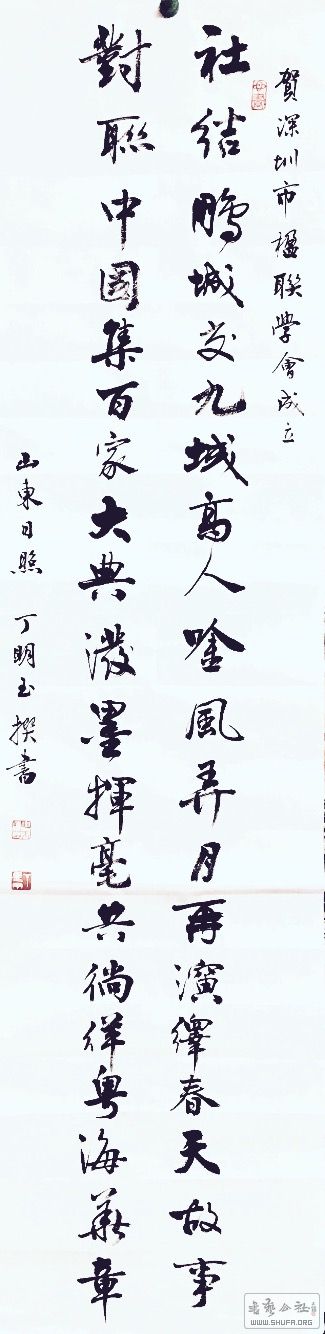 賀深圳市楹聯學會成立
社結鵬城交九城高人唫風弄月再演繹春天故事
對聯中國集百家大典潑墨揮毫共徜徉粤海華章
山東日照 丁明玉撰書
WWW.SHUFA.ORG